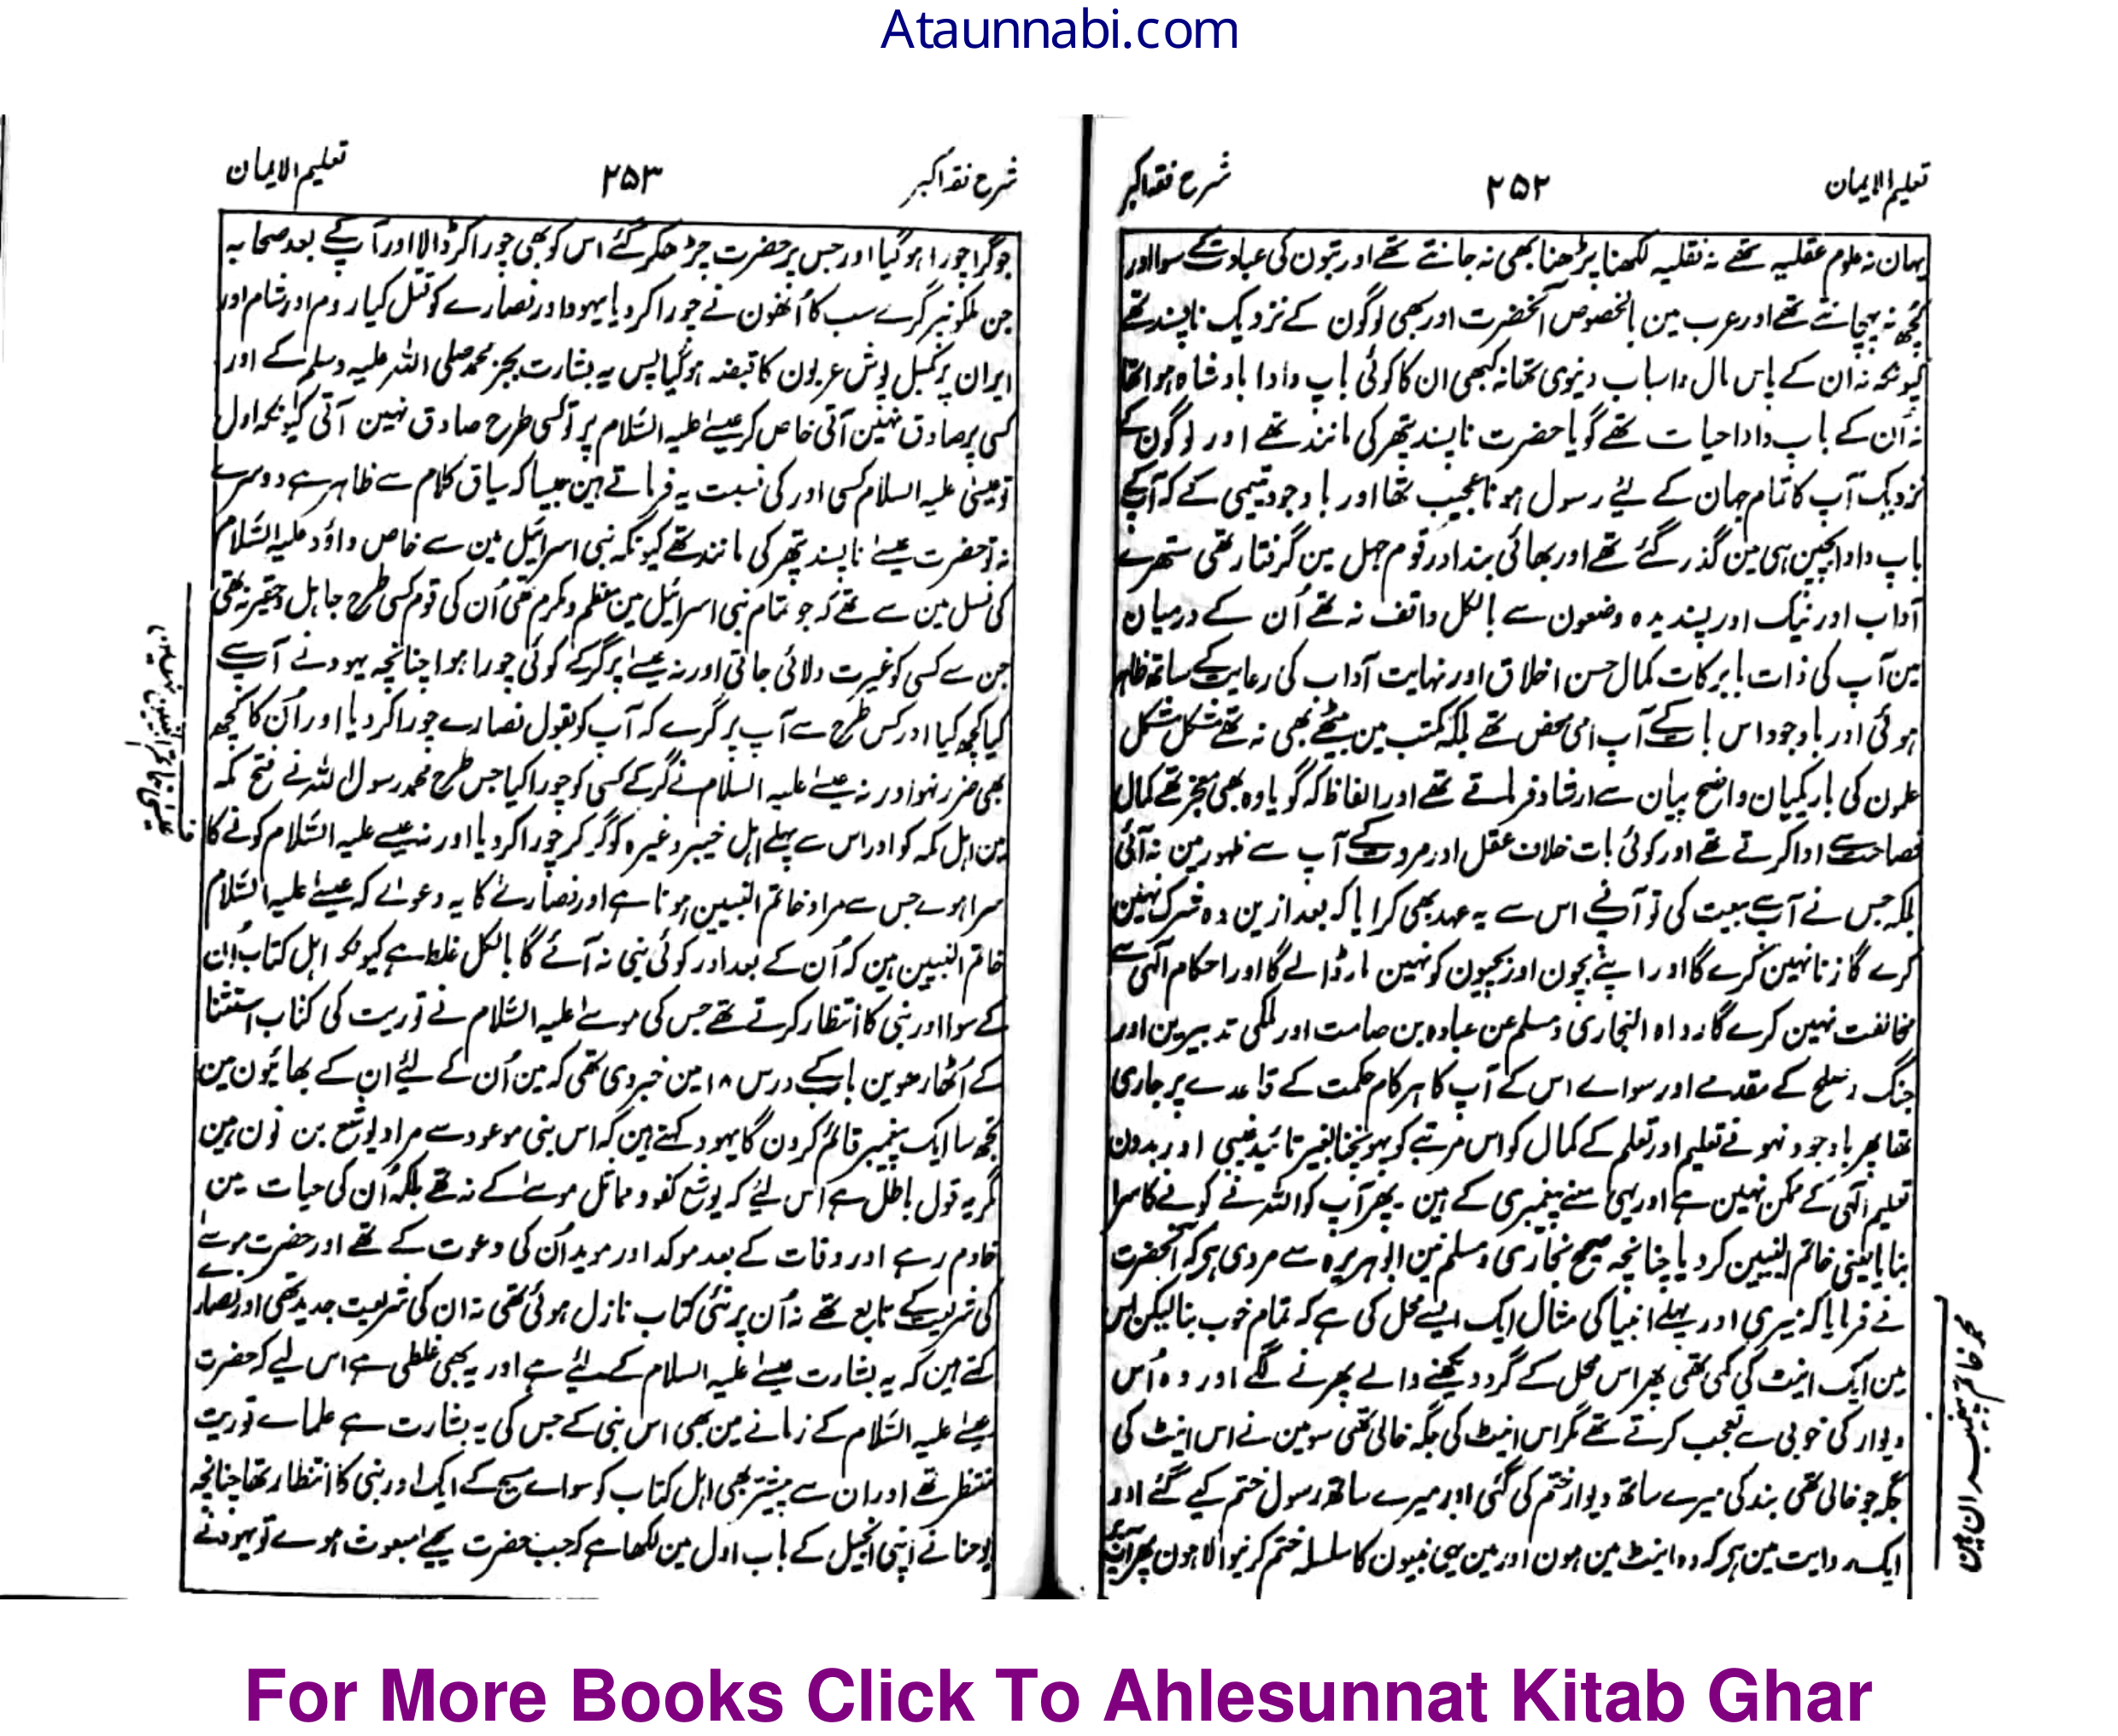 Ataunnabi.com
تعلیم الایمان
۲۵۲
شرح فقہ اکبر
یہان نہ علوم عقلیہ تھے نہ نقلیہ لکھنا پڑھنا بھی نہ جانتے تھے اور بتون کی عبادت کے سوا اور
کچھ نہ پہچانتے تھے اور عرب مین بالخصوص آنحضرت اور بھی لوگون کے نزدیک ناپسند تھے
کیونکہ نہ ان کے پاس مال و اسباب دنیوی تھا نہ کبھی ان کا کوئی باپ دادا بادشاہ ہوا تھا
نہ ان کے باپ دادا حیات تھے گویا حضرت ناپسند پتھر کی مانند تھے اور لوگون کے
نزدیک آپ کا تمام جہان کے لئے رسول ہونا عجیب تھا اور باوجود یتیمی کے کہ آپ کے
باپ دادا بچپن ہی مین گذر گئے تھے اور بھائی بند اور قوم جہل مین گرفتار تھی ستھرے
آداب اور نیک اور پسندیدہ وضعون سے بالکل واقف نہ تھے اُن کے درمیان
مین آپ کی ذات بابرکات کمال حسن اخلاق اور نہایت آداب کی رعایت کے ساتھ ظاہر
ہوئی اور باوجود اس بات کے آپ امی محض تھے بلکہ مکتب مین بیٹھے بھی نہ تھے مشکل مشکل
علمون کی باریکیان واضح بیان سے ارشاد فرماتے تھے اور الفاظ کہ گویا وہ بھی معجز تھے کمال
فصاحت سے ادا کرتے تھے اور کوئی بات خلاف عقل اور مروت کے آپ سے ظہور مین نہ آئی
بلکہ جس نے آپ سے بیعت کی تو آپ نے اس سے یہ عہد بھی کرایا کہ بعد ازین وہ شرک نہین
کرے گا زنا نہین کرے گا اور اپنے بچون اور بچیون کو نہین مار ڈالے گا اور احکام الٰہی سے
مخالفت نہین کرے گا رواہ البخاری و مسلم عن عبادہ بن صامت اور ملکی تدبیرین اور
جنگ و صلح کے مقدمے اور سواے اس کے آپ کا ہر کام حکمت کے قاعدے پر جاری
تھا پھر باوجود نہونے تعلیم اور تعلم کے کمال کو اس مرتبے کو پہونچنا بغیر تائید غیبی اور بدون
تعلیم الٰہی کے ممکن نہین ہے اور یہی معنے پیغمبری کے ہین ۔ پھر آپ کو اللہ نے کونے کا سرا
بنایا یعنی خاتم النبیین کر دیا چنانچہ صحیح بخاری و مسلم مین ابو ہریرہ سے مروی ہی کہ آنحضرت
نے فرمایا کہ میری اور پہلے انبیا کی مثال ایک ایسے محل کی ہے کہ تمام خوب بنا لیکن اس
مین ایک اینٹ کی کمی تھی پھر اس محل کے گرد دیکھنے والے پھرنے لگے اور وہ اُس
دیوار کی خوبی سے تعجب کرتے تھے مگر اس اینٹ کی جگہ خالی تھی سو مین نے اس اینٹ کی
جگہ جو خالی تھی بند کی میرے ساتھ دیوار ختم کی گئی اور میرے ساتھ رسول ختم کیے گئے اور
ایک روایت مین ہی کہ وہ اینٹ مین ہون اور مین ہی نبیون کا سلسلہ ختم کرنیوالا ہون پھر آپ پر
محمد خاتم پیغمبران ہین
شرح فقہ اکبر
۲۵۳
تعلیم الایمان
جو گرا چورا ہو گیا اور جس پر حضرت چڑھکر گئے اس کو بھی چورا کر ڈالا اور آپ کے بعد صحابہ
جن ملکونپر گرے سب کا اُنھون نے چورا کر دیا یہود اور نصارے کو قتل کیا روم اور شام اور
ایران پر کمبل پوش عربون کا قبضہ ہو گیا پس یہ بشارت بجز محمد صلی اللہ علیہ وسلم کے اور
کسی پر صادق نہین آتی خاص کر عیسے علیہ السَّلام پر تو کسی طرح صادق نہین آتی کیونکہ اول
تو عیسیٰ علیہ السلام کسی اور کی نسبت یہ فرماتے ہین جیسا کہ سیاق کلام سے ظاہر ہے دوسرے
نہ تو حضرت عیسے ناپسند پتھر کی مانند تھے کیونکہ بنی اسرائیل مین سے خاص داؤد علیہ السَّلام
کی نسل مین سے تھے کہ جو تمام بنی اسرائیل مین معظم و مکرم تھی اُن کی قوم کسی طرح جاہل و حقیر نہ تھی
جن سے کسی کو غیرت دلائی جاتی اور نہ عیسےٰ پر گر کے کوئی چورا ہوا چنانچہ یہود نے آپ سے
کیا کچھ کیا اور کس طرح سے آپ پر گرے کہ آپ کو بقول نصارے چورا کر دیا اور اُن کا کچھ
بھی ضرر نہوا اور نہ عیسے علیہ السلام نے گر کے کسی کو چورا کیا جس طرح محمد رسول اللہ نے فتح مکہ
مین اہل مکہ کو اور اس سے پہلے اہل خیبر وغیرہ کو گر کر چورا کر دیا اور نہ عیسے علیہ السَّلام کونے کا
سرا ہوے جس سے مراد خاتم النبیین ہونا ہے اور نصارے کا یہ دعوے کہ عیسےٰ علیہ السَّلام
خاتم النبیین ہین کہ اُن کے بعد اور کوئی نبی نہ آئے گا بالکل غلط ہے کیونکہ اہل کتاب اُن
کے سوا اور نبی کا انتظار کرتے تھے جس کی موسےٰ علیہ السَّلام نے توریت کی کتاب استثنا
کے اٹھارھوین باب کے درس ۱۸ مین خبر دی تھی کہ مین اُن کے لئے ان کے بھائیون مین
تجھ سا ایک پیغمبر قائم کرون گا یہود کہتے ہین کہ اس نبی موعود سے مراد یوشع بن نون ہین
مگر یہ قول باطل ہے اس لئے کہ یوشع کفو و مماثل موسےٰ کے نہ تھے بلکہ اُن کی حیات مین
خادم رہے اور وفات کے بعد موکد اور موید اُن کی دعوت کے تھے اور حضرت موسےٰ
کی شریعت کے تابع تھے نہ اُن پر نئی کتاب نازل ہوئی تھی نہ ان کی شریعت جدید تھی اور نصارے
کہتے ہین کہ یہ بشارت عیسےٰ علیہ السلام کے لئے ہے اور یہ بھی غلطی ہے اس لیے کہ حضرت
عیسےٰ علیہ السَّلام کے زمانے مین بھی اس نبی کے جس کی یہ بشارت ہے علماے توریت
منتظر تھے اور ان سے پیشتر بھی اہل کتاب کو سواے مسیح کے ایک اور نبی کا انتظار تھا چنانچہ
یوحنا نے اپنی انجیل کے باب اول مین لکھا ہے کہ جب حضرت یحیےٰ مبعوث ہوے تو یہود نے
For More Books Click To Ahlesunnat Kitab Ghar